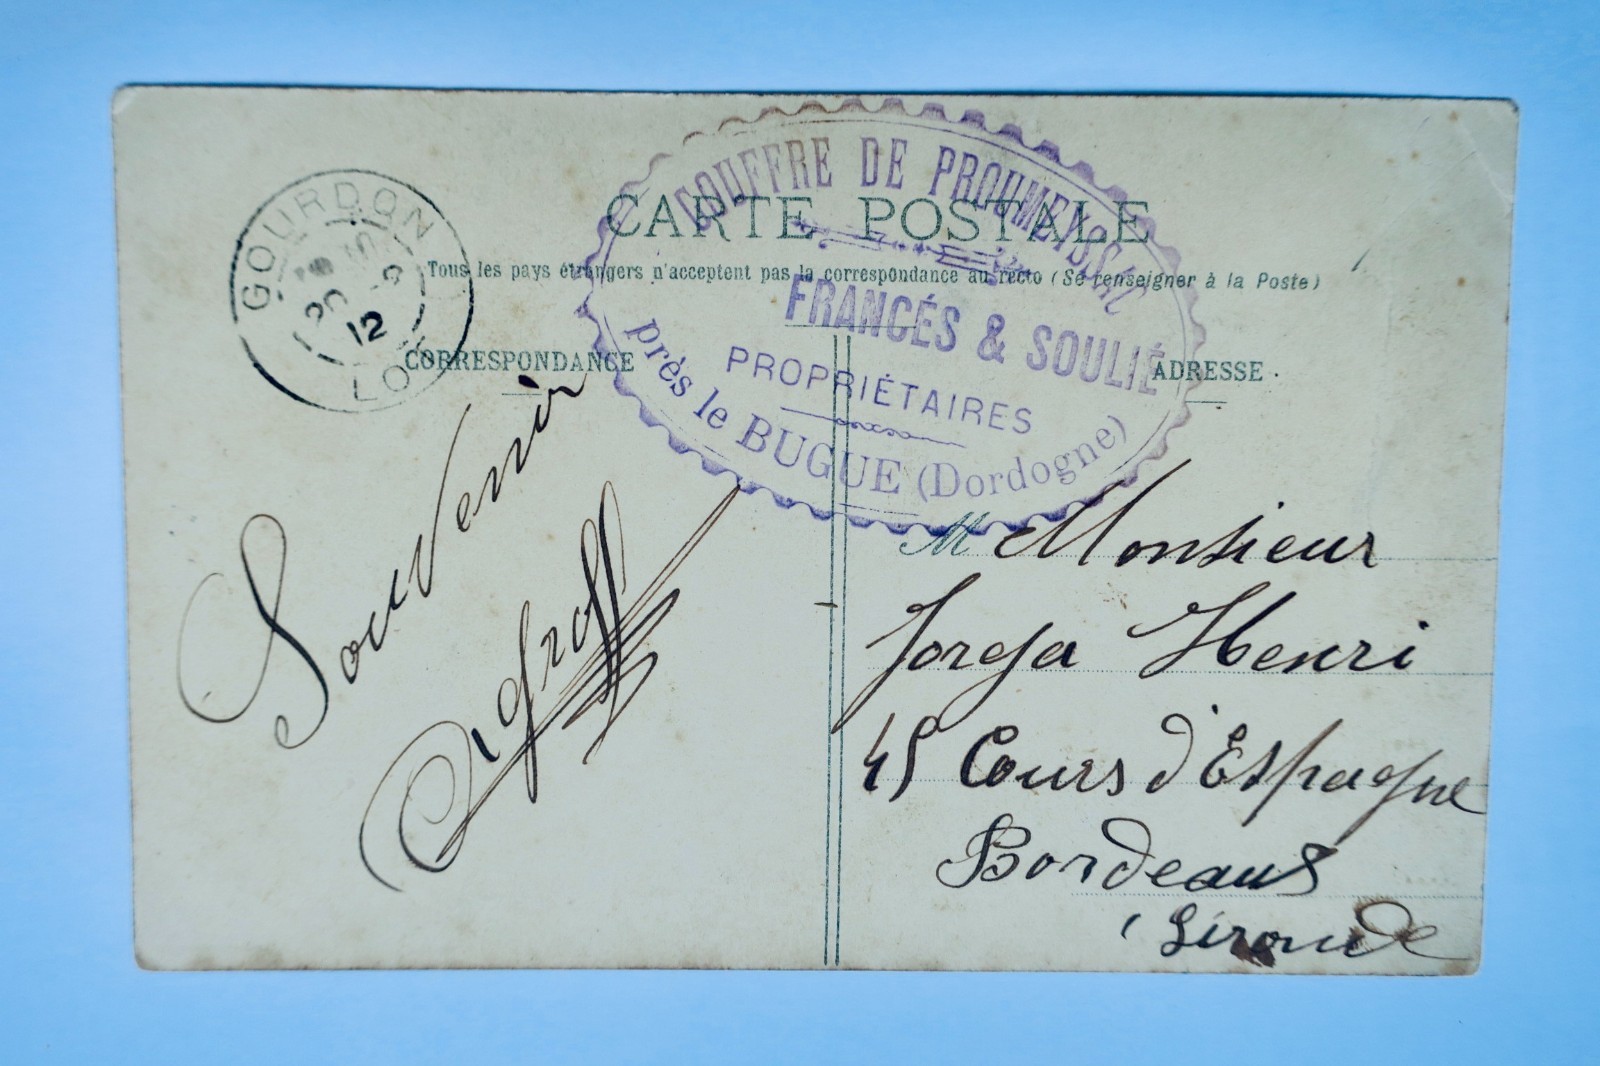 GOUFFRE DE PROUMEYSSAC
CARTE POSTALE
Tous les pays étrangers n'acceptent pas la correspondance au recto (Se renseigner à la Poste)
GOURDON
20 -9
12
LOT
FRANCÉS & SOULIÉ
PROPRIÉTAIRES
près le BUGUE (Dordogne)
CORRESPONDANCE
ADRESSE
Souvenir
M Monsieur
Jorga Henri
45 Cours d'Espagne
Bordeaux
Gironde